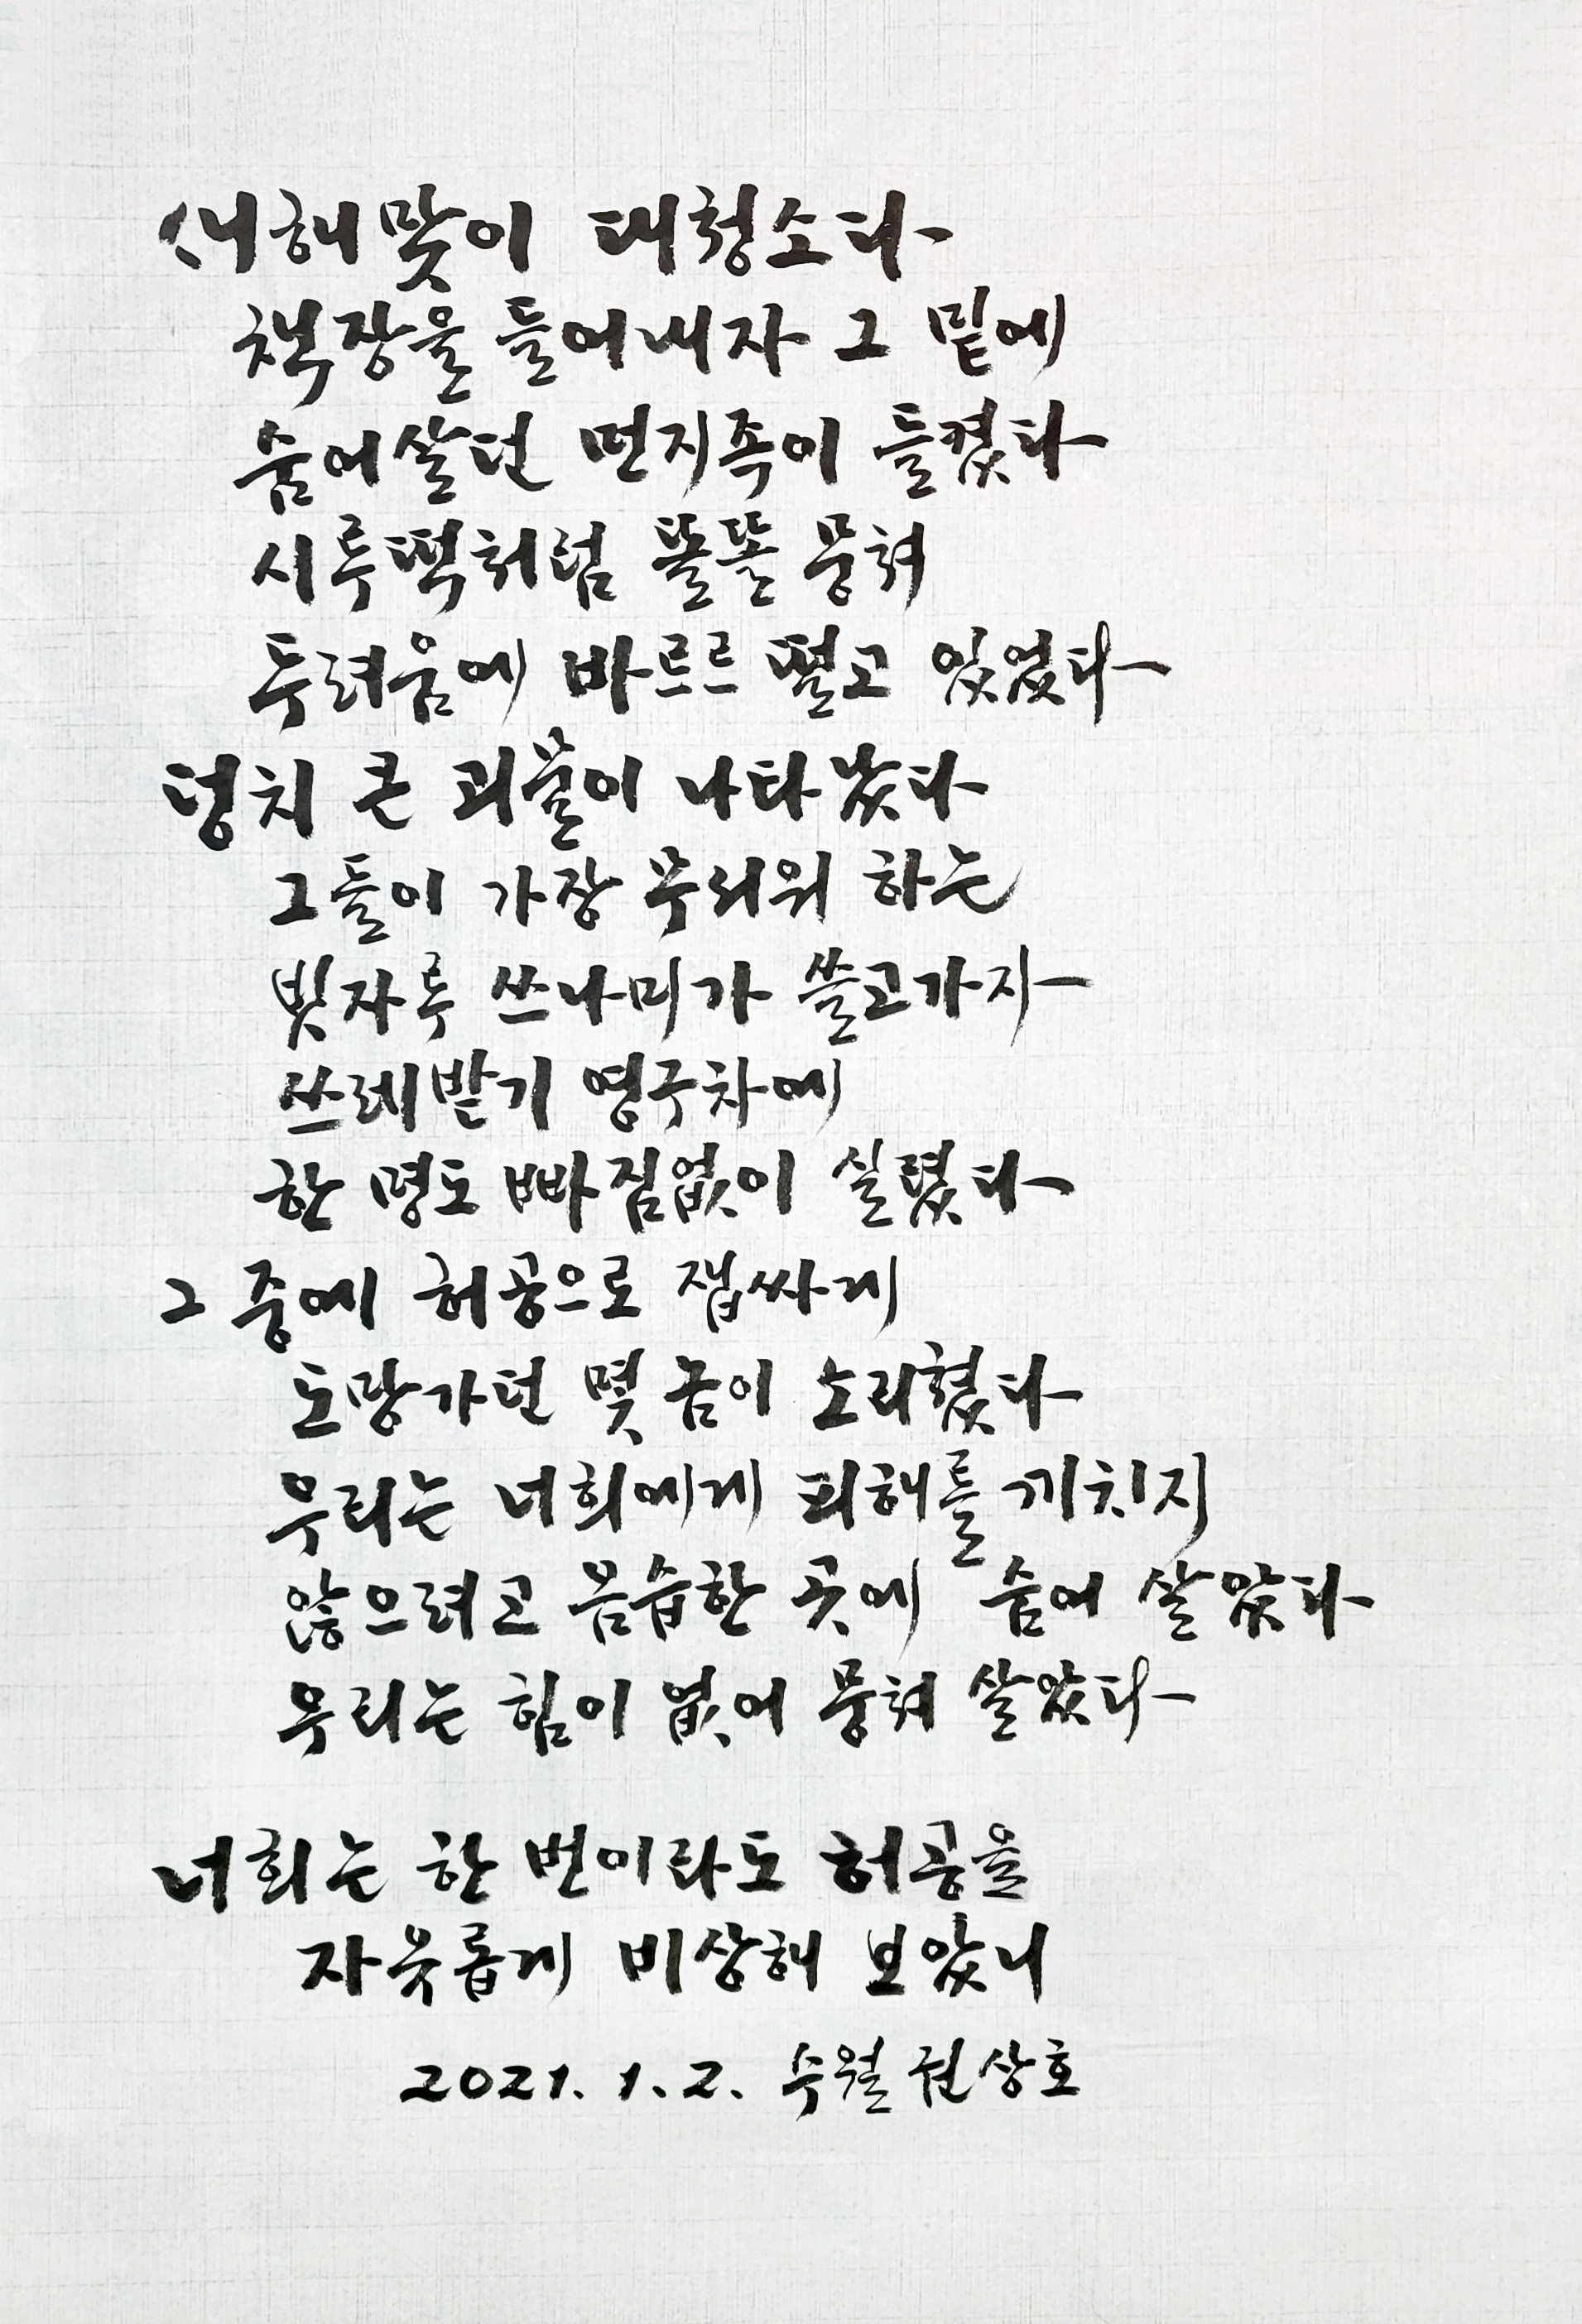 새해맞이 대청소다
책장을 들어내자 그 밑에
숨어살던 먼지족이 들켰다
시루떡처럼 똘똘 뭉쳐
두려움에 바르르 떨고 있었다
덩치 큰 괴물이 나타났다
그들이 가장 무서워 하는
빗자루 쓰나미가 쓸고가자
쓰레받기 영구차에
한 명도 빠짐없이 실렸다
그 중에 허공으로 잽싸게
도망가던 몇 놈이 소리쳤다
우리는 너희에게 피해를 끼치지
않으려고 음습한 곳에 숨어 살았다
우리는 힘이 없어 뭉쳐 살았다
너희는 한 번이라도 허공을
자유롭게 비상해 보았니
2021. 1. 2. 수월 권상호